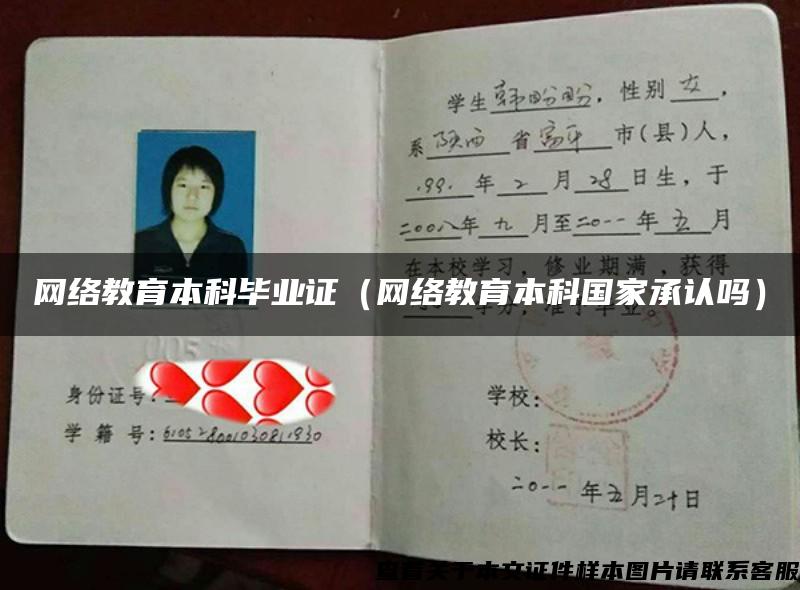 学生韩盼盼，性别女，
系陕西省富平市(县)人，
1991年2月28日生，于
二00八年九月至二0一一年五月
在本校学习，修业期满，获得
网络教育本科毕业证（网络教育本科国家承认吗）
学分，准予毕业。
005
身份证号：
学籍号：610528001030811930
学校：
校长：
二0一一年五月二十日
查看关于本文证件样本图片请联系客服